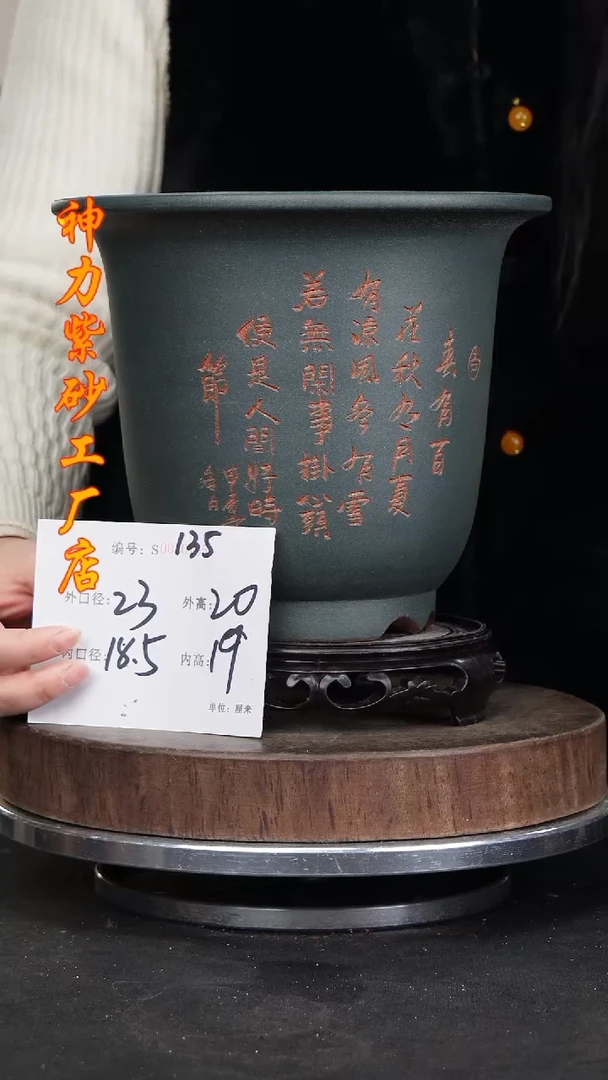 神力紫砂工厂店
春有百
花秋有月夏
有凉風冬有雪
若無閑事掛心頭
便是人間好時
節
编号：S00135
外口径：23 外高：20
内口径：18.5 内高：19
单位：厘米